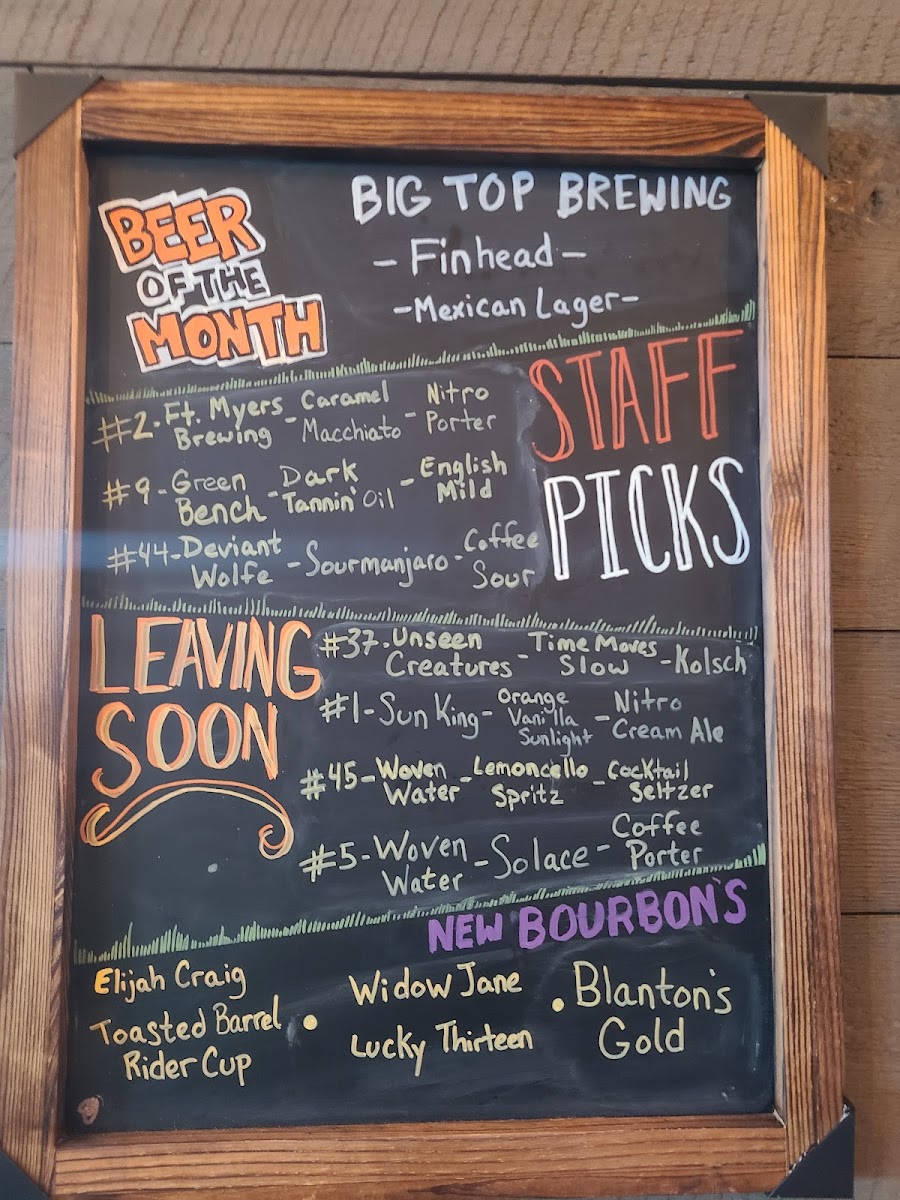 BEER
OF THE
MONTH
BIG TOP BREWING
- Finhead -
-Mexican Lager-
STAFF
PICKS
#2. Ft. Myers Brewing - Caramel Macchiato - Nitro Porter
#9 - Green Bench - Dark Tannin' Oil - English Mild
#44 - Deviant Wolfe - Sourmanjaro - Coffee Sour
LEAVING
SOON
#37. Unseen Creatures - Time Moves Slow - Kolsch
#1 - Sun King - Orange Vanilla Sunlight - Nitro Cream Ale
#45 - Woven Water - Lemoncello Spritz - Cocktail Seltzer
#5 - Woven Water - Solace - Coffee Porter
NEW BOURBON'S
Elijah Craig
Toasted Barrel
Rider Cup
•
Widow Jane
Lucky Thirteen
•
Blanton's
Gold